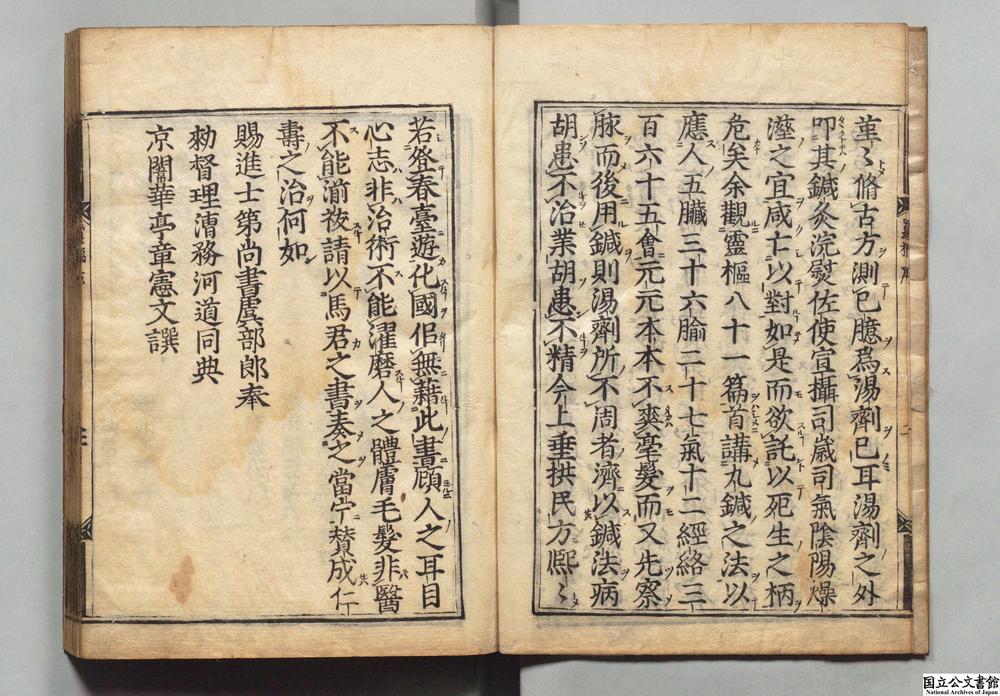 革〻脩古方測已臆爲湯劑已耳湯劑之外
叩其鍼灸浣熨佐使宣攝司歲司氣陰陽燥
溼之宜咸亡以對如是而欲託以死生之柄
危矣余觀靈樞八十一篇首講九鍼之法以
應人五臟三十六腧二十七氣十二經絡三
百六十五會元元本本不爽毫髮而又先察
脉而後用鍼則湯劑所不周者濟以鍼法病
胡患不治業胡患不精今上垂拱民方熈〻
若登春臺遊化國佀無藉此書顧人之耳目
心志非治術不能濯磨人之體膚毛髮非醫
不能湔祓請以馬君之書奏之當宁賛成仁
壽之治何如
賜進士第尚書虞部郎奉
勑督理漕務河道同典
京闈華亭章憲文譔
国立公文書館
National Archives of Japan